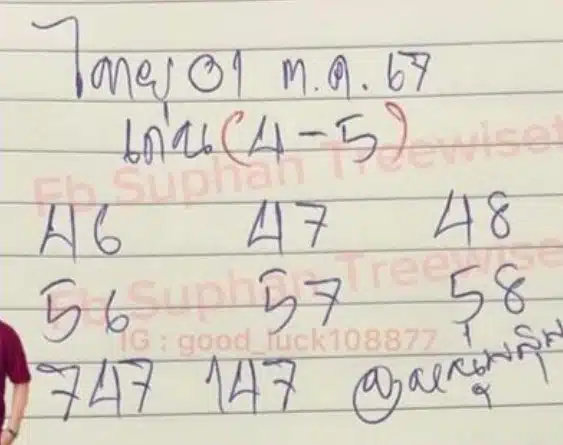 ไทย 01 ต.ค. 67
เด่น (4-5)
Fb.Suphan Treewiset
46 47 48
Fb.Suphan Treewise
56 57 58
IG : good_luck108877
747 147